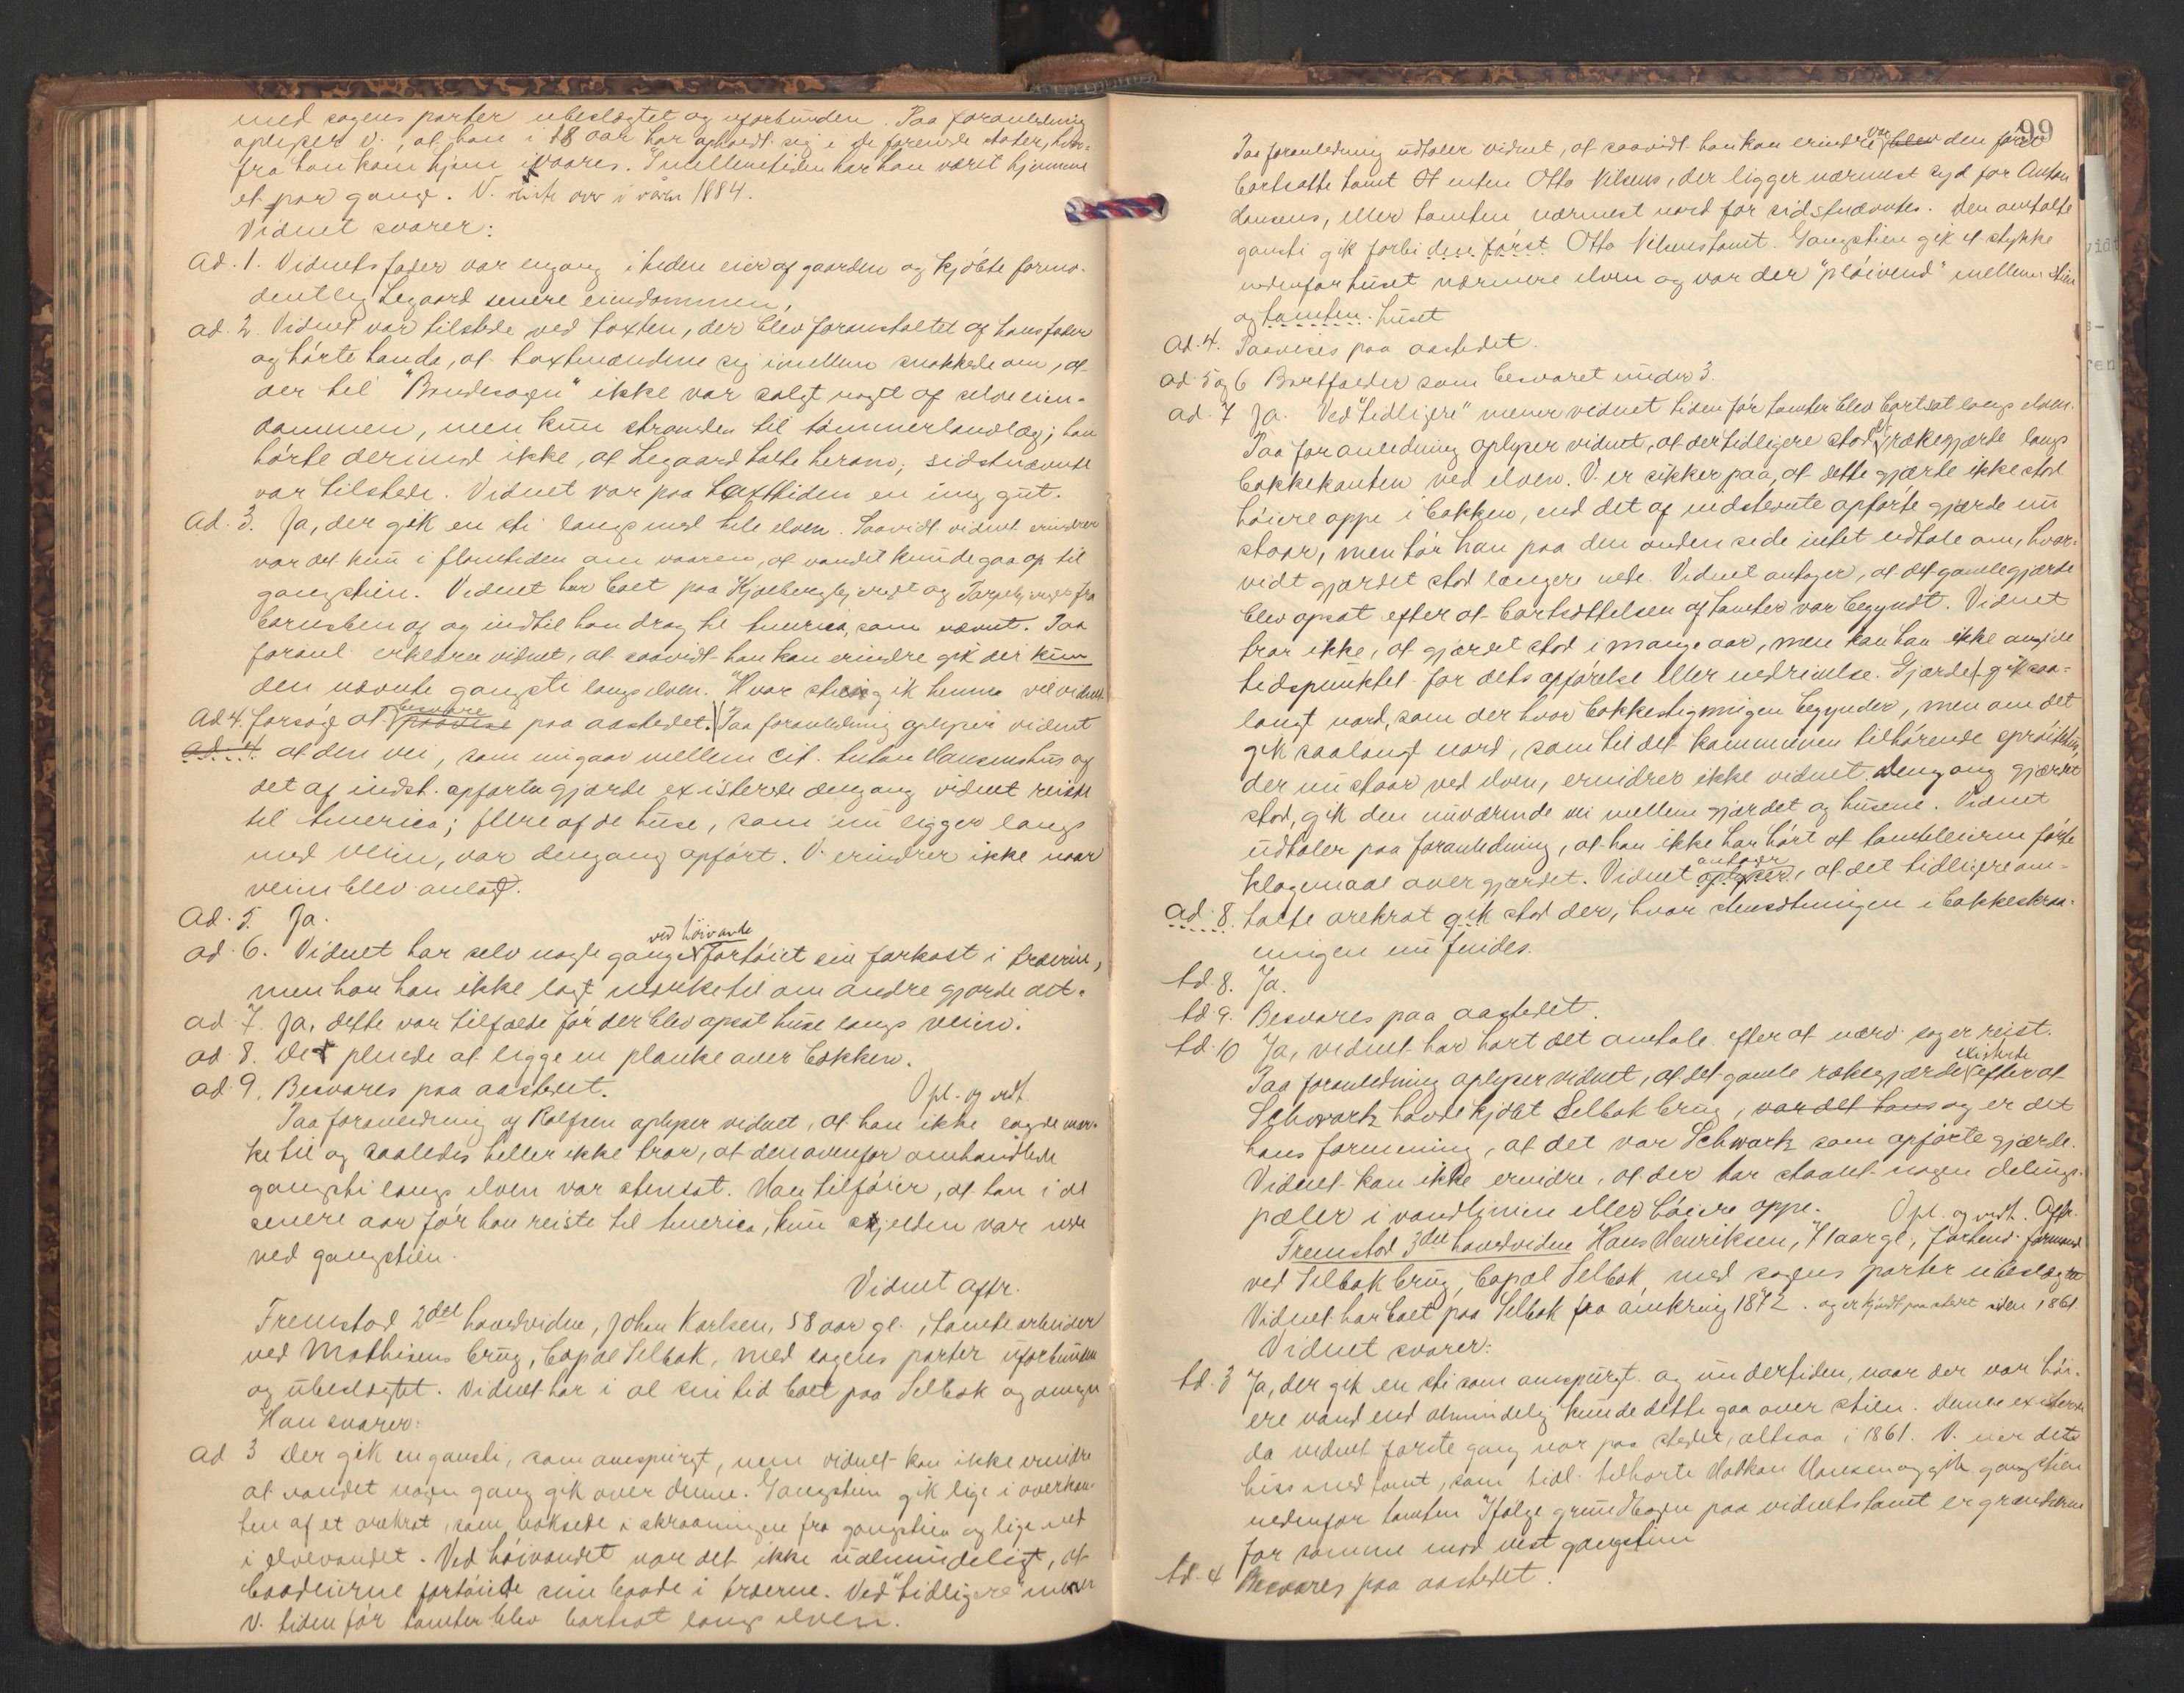 med sagens parter ubeslægtet og uforbunden. Paa foranledning
oplyser v., at han i 18 aar har opholdt sig i de forenede stater, hvor-
fra han kom hjem ivaares. I mellemtiden har han været hjemme
et par gange. V. reiste over i våren 1884.
Vidnet svarer:
Ad. 1. Vidnets fader var engang i tiden eier af gaarden og kjøbte formo-
dentlig Legaard senere eiendommen.
ad. 2. Vidnet var tilstede ved taxten, der blev foranstaltet af hans fader
og hørte handa, at taxtmændene sig imellem snakkede om, at
der til "Brudesagen" ikke var solgt noget af selve eien-
dommen, men kun stranden til tømmerlandlæg; han
hørte derimod ikke, at Legaard talte herom; sidstnævnte
var tilstede. Vidnet var paa taxttiden en ung gut.
ad. 3. Ja, der gik en sti langs med hele elven. Saavidt vidnet erindrer
var det kun i flomtiden om vaaren, at vandet kunde gaa op til
gangstien. Vidnet har boet paa Kjølbergbjerget og Torpebjerget fra
barnsben af og indtil han drog til America, som nævnt. Paa
foranl. erklærer vidnet, at saavidt han kan erindre gik der kun
den nævnte gangsti langs elven. Hvor stien gik henne vil vidnet
Ad 4. forsøge at besvare paavise paa aastedet. Paa foranledning oplyser vidnet
ad. 4 at den vei, som nu gaar mellem cit. Anton Hansens hus og
det af indst. opførte gjærde existerede dengang vidnet reiste
til America; flere af de huse, som nu ligger langs
med veien, var dengang opført. V. erindrer ikke naar
veien blev anlagt.
Ad. 5. Ja.
ad. 6. Vidnet har selv nogle gange ved høivande fortøiet sin farkost i træerne,
men har han ikke lagt mærke til om andre gjorde det.
ad 7. Ja, dette var tilfælde før der blev opsat huse langs veien.
ad 8. Det pleiede at ligge en planke over bækken.
ad 9. Besvares paa aastedet. Opl. og vedt.
Paa foranledning af Rolfsen oplyser vidnet, at han ikke lagde mær-
ke til og saaledes heller ikke tror, at den ovenfor omhandlede
gangsti langs elven var stensat. Han tilføier, at han i de
senere aar før han reiste til America, kun sjelden var nede
ved gangstien.
Vidnet aftr.
Fremstod 2det hovedvidne, Johan Karlsen, 58 aar gl., tomtearbeider
ved Mathisens brug, bopæl Selbak, med sagens parter uforbunden
og ubeslægtet. Vidnet har i al sin tid boet paa Selbak og omegn
Han svarer:
ad 3 Der gik en gansti, som omspurgt, men vidnet kan ikke erindre
at vandet nogen gang gik over denne. Gangstien gik lige i overkan-
ten af et orekrat, som voksede i skraaningen fra gangstien og lige ned
i elvevandet. Ved høivandet var det ikke ualmindeligt, at
baadeierne fortøiede sine baade i træerne. Ved "tidligere" mener
V. tiden før tomter blev bortsat langs elven.
99
Paa foranledning udtaler vidnet, at saavidt han kan erindre var blev den først
bortsatte tomt at enten Otto Nilsens, der ligger nærmest syd for Anton
Hansens, eller tomten nærmest nord for sidstnævntes. Den omtalte
gansti gik forbi den først Otto Nilsens tomt. Gangstien gik et stykke
nedenfor huset nærmere elven og var der "pløivend" mellem stien
og tomten. huset
Ad. 4. Paavises paa aastedet.
ad. 5 og 6 Bortfalder som besvaret under 3.
ad. 7 Ja. Ved "tidligere" mener vidnet tiden før tomter blev bortsat langs elven.
Paa foranledning oplyser vidnet, at der tidligere stod et rækegjærde langs
bakkekanten ved elven. V. er sikker paa, at dette gjærde ikke stod
høiere oppe i bakken, end det af indstevnte opførte gjærde nu
staar, men tør han paa den anden side intet udtale om, hvor-
vidt gjærdet stod længere nede. Vidnet antager, at det gamle gjærde
blev opsat efter at bortsættelsen af tomter var begyndt. Vidnet
tror ikke, at gjærdet stod i mange aar, men kan han ikke angive
tidspunktet for dets opførelse eller nedrivelse. Gjærdet gik saa-
langt nord, som der hvor bakkestigningen begynder, men om det
gik saalangt nord, som til det kommunen tilhørende sprøitehus,
der nu staar ved elven, erindrer ikke vidnet. Dengang gjærdet
stod, gik den nuværende vei mellem gjærdet og husene. Vidnet
udtaler paa foranledning, at han ikke har hørt at tomteeierne førte
klagemaal over gjærdet. Vidnet antager oplyser, at det tidligere om-
ad. 8. talte orekrat gik stod der, hvor stensætningen i bakkeskraa-
ningen nu findes.
Ad. 8. Ja.
Ad. 9. Besvares paa aastedet.
Ad. 10 Ja, vidnet har hørt det omtale efter at nærv. sag er reist.
Paa foranledning oplyser vidnet, at det gamle rækegjærde existerte efter at
Schwartz havde kjøbt Selbak brug, var det hans og er det
hans formening, at det var Schwartz som opførte gjærde.
Vidnet kan ikke erindre, at der har staaet nogen delings-
pæler i vandlinien eller høiere oppe. Opl. og vedt. Aftr.
Fremstod 3die hovedvidne Hans Henriksen, 71 aar gl., forhenv. formand
ved Selbak brug, bopæl Selbak, med sagens parter ubeslægtet
Vidnet har boet paa Selbak fra omkring 1872. og er kjendt paa stedet siden 1861
Vidnet svarer:
Ad. 3 Ja, der gik en sti som omspurgt og undertiden, naar der var høi-
ere vand end almindelig kunde dette gaa over stien. Denne existerede
da vidnet første gang var paa stedet, altsaa i 1861. V. eier dets
hus med tomt, som tidl. tilhørte Haakon Hansen og gik gangstien
nedenfor tomten. Ifølge grundbogen paa vidnets tomt er grændsen
for samme mod vest gangstien
Ad. 4 Besvares paa aastedet.